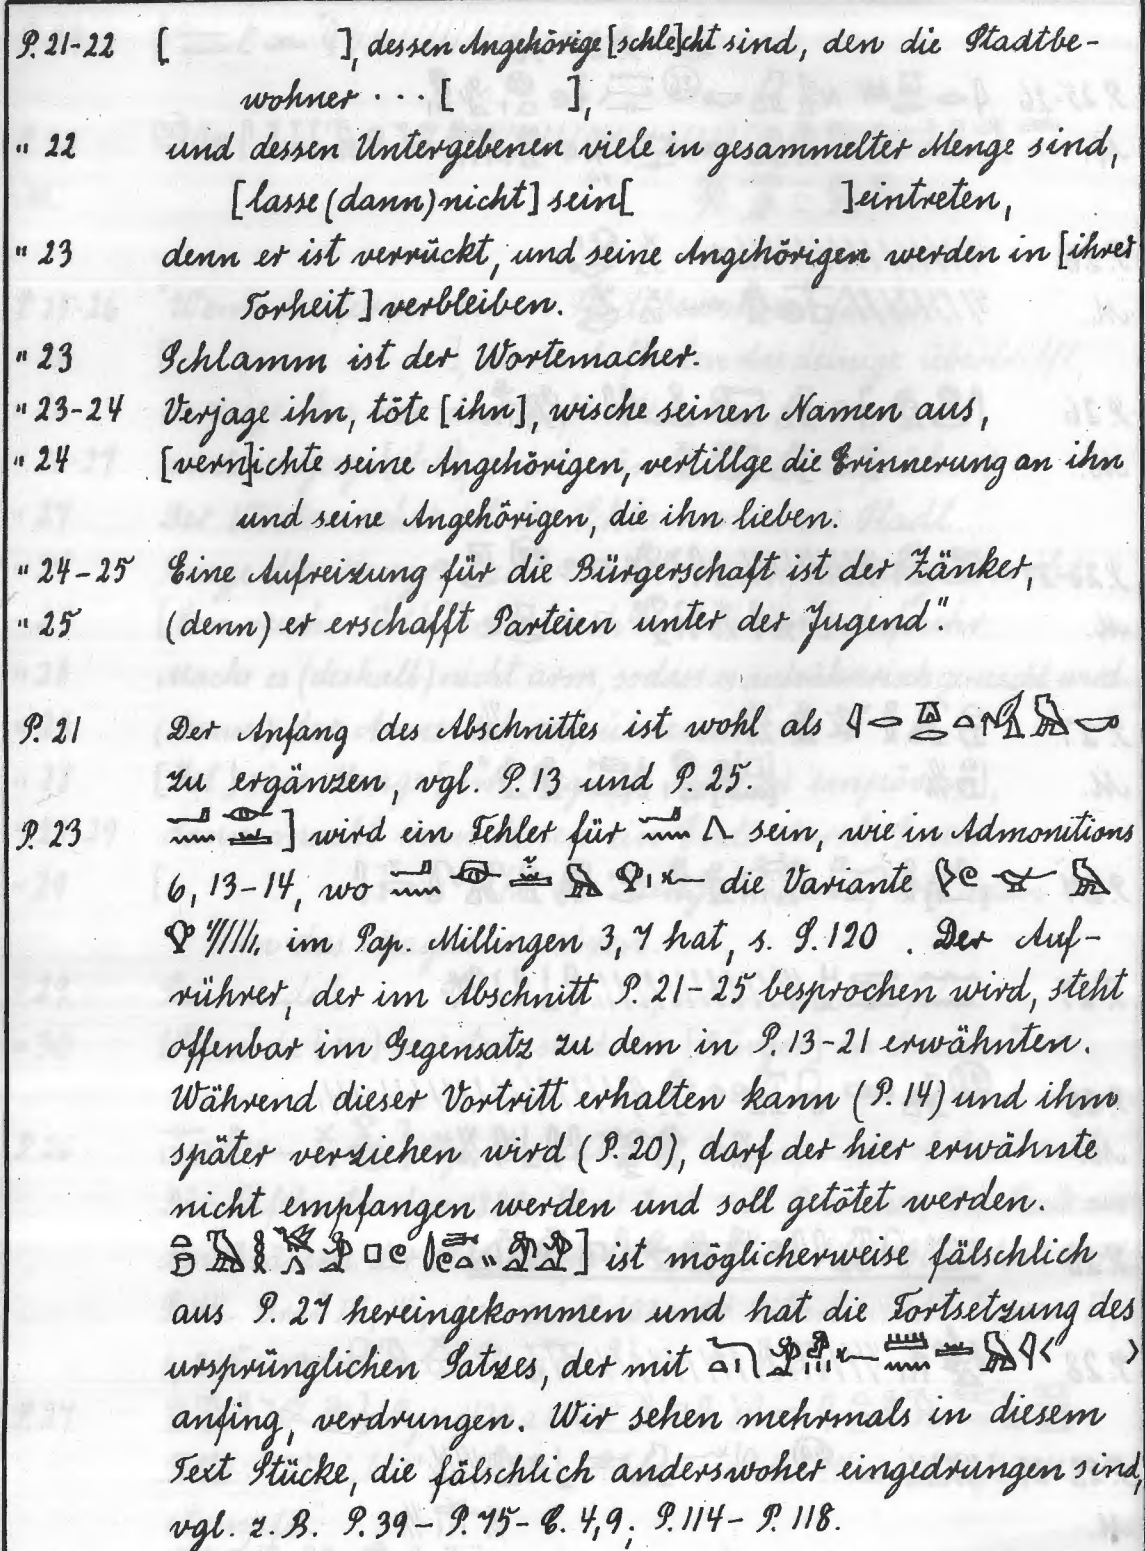 P. 21-22 [ ], dessen Angehörige [schle]cht sind, den die Stadtbe-
wohner ... [ ],
" 22 und dessen Untergebenen viele in gesammelter Menge sind,
[lasse (dann) nicht] sein [ ] eintreten,
" 23 denn er ist verrückt, und seine Angehörigen werden in [ihrer
Torheit] verbleiben.
" 23 Schlamm ist der Wortemacher.
" 23-24 Verjage ihn, töte [ihn], wische seinen Namen aus,
" 24 [vern]ichte seine Angehörigen, vertillge die Erinnerung an ihn
und seine Angehörigen, die ihn lieben.
" 24-25 Eine Aufreizung für die Bürgerschaft ist der Zänker,
" 25 (denn) er erschafft Parteien unter der Jugend".
P. 21 Der Anfang des Abschnittes ist wohl als
zu ergänzen, vgl. P. 13 und P. 25.
P. 23 ] wird ein Fehler für sein, wie in Admonitions
6, 13-14, wo die Variante
im Pap. Millingen 3,7 hat, s. S. 120. Der Auf-
rührer, der im Abschnitt P. 21-25 besprochen wird, steht
offenbar im Gegensatz zu dem in P. 13-21 erwähnten.
Während dieser Vortritt erhalten kann (P. 14) und ihm
später verziehen wird (P. 20), darf der hier erwähnte
nicht empfangen werden und soll getötet werden.
] ist möglicherweise fälschlich
aus P. 27 hereingekommen und hat die Fortsetzung des
ursprünglichen Satzes, der mit < >
anfing, verdrungen. Wir sehen mehrmals in diesem
Text Stücke, die fälschlich anderswoher eingedrungen sind,
vgl. z. B. P. 39 - P. 75 - C. 4,9; P. 114 - P. 118.